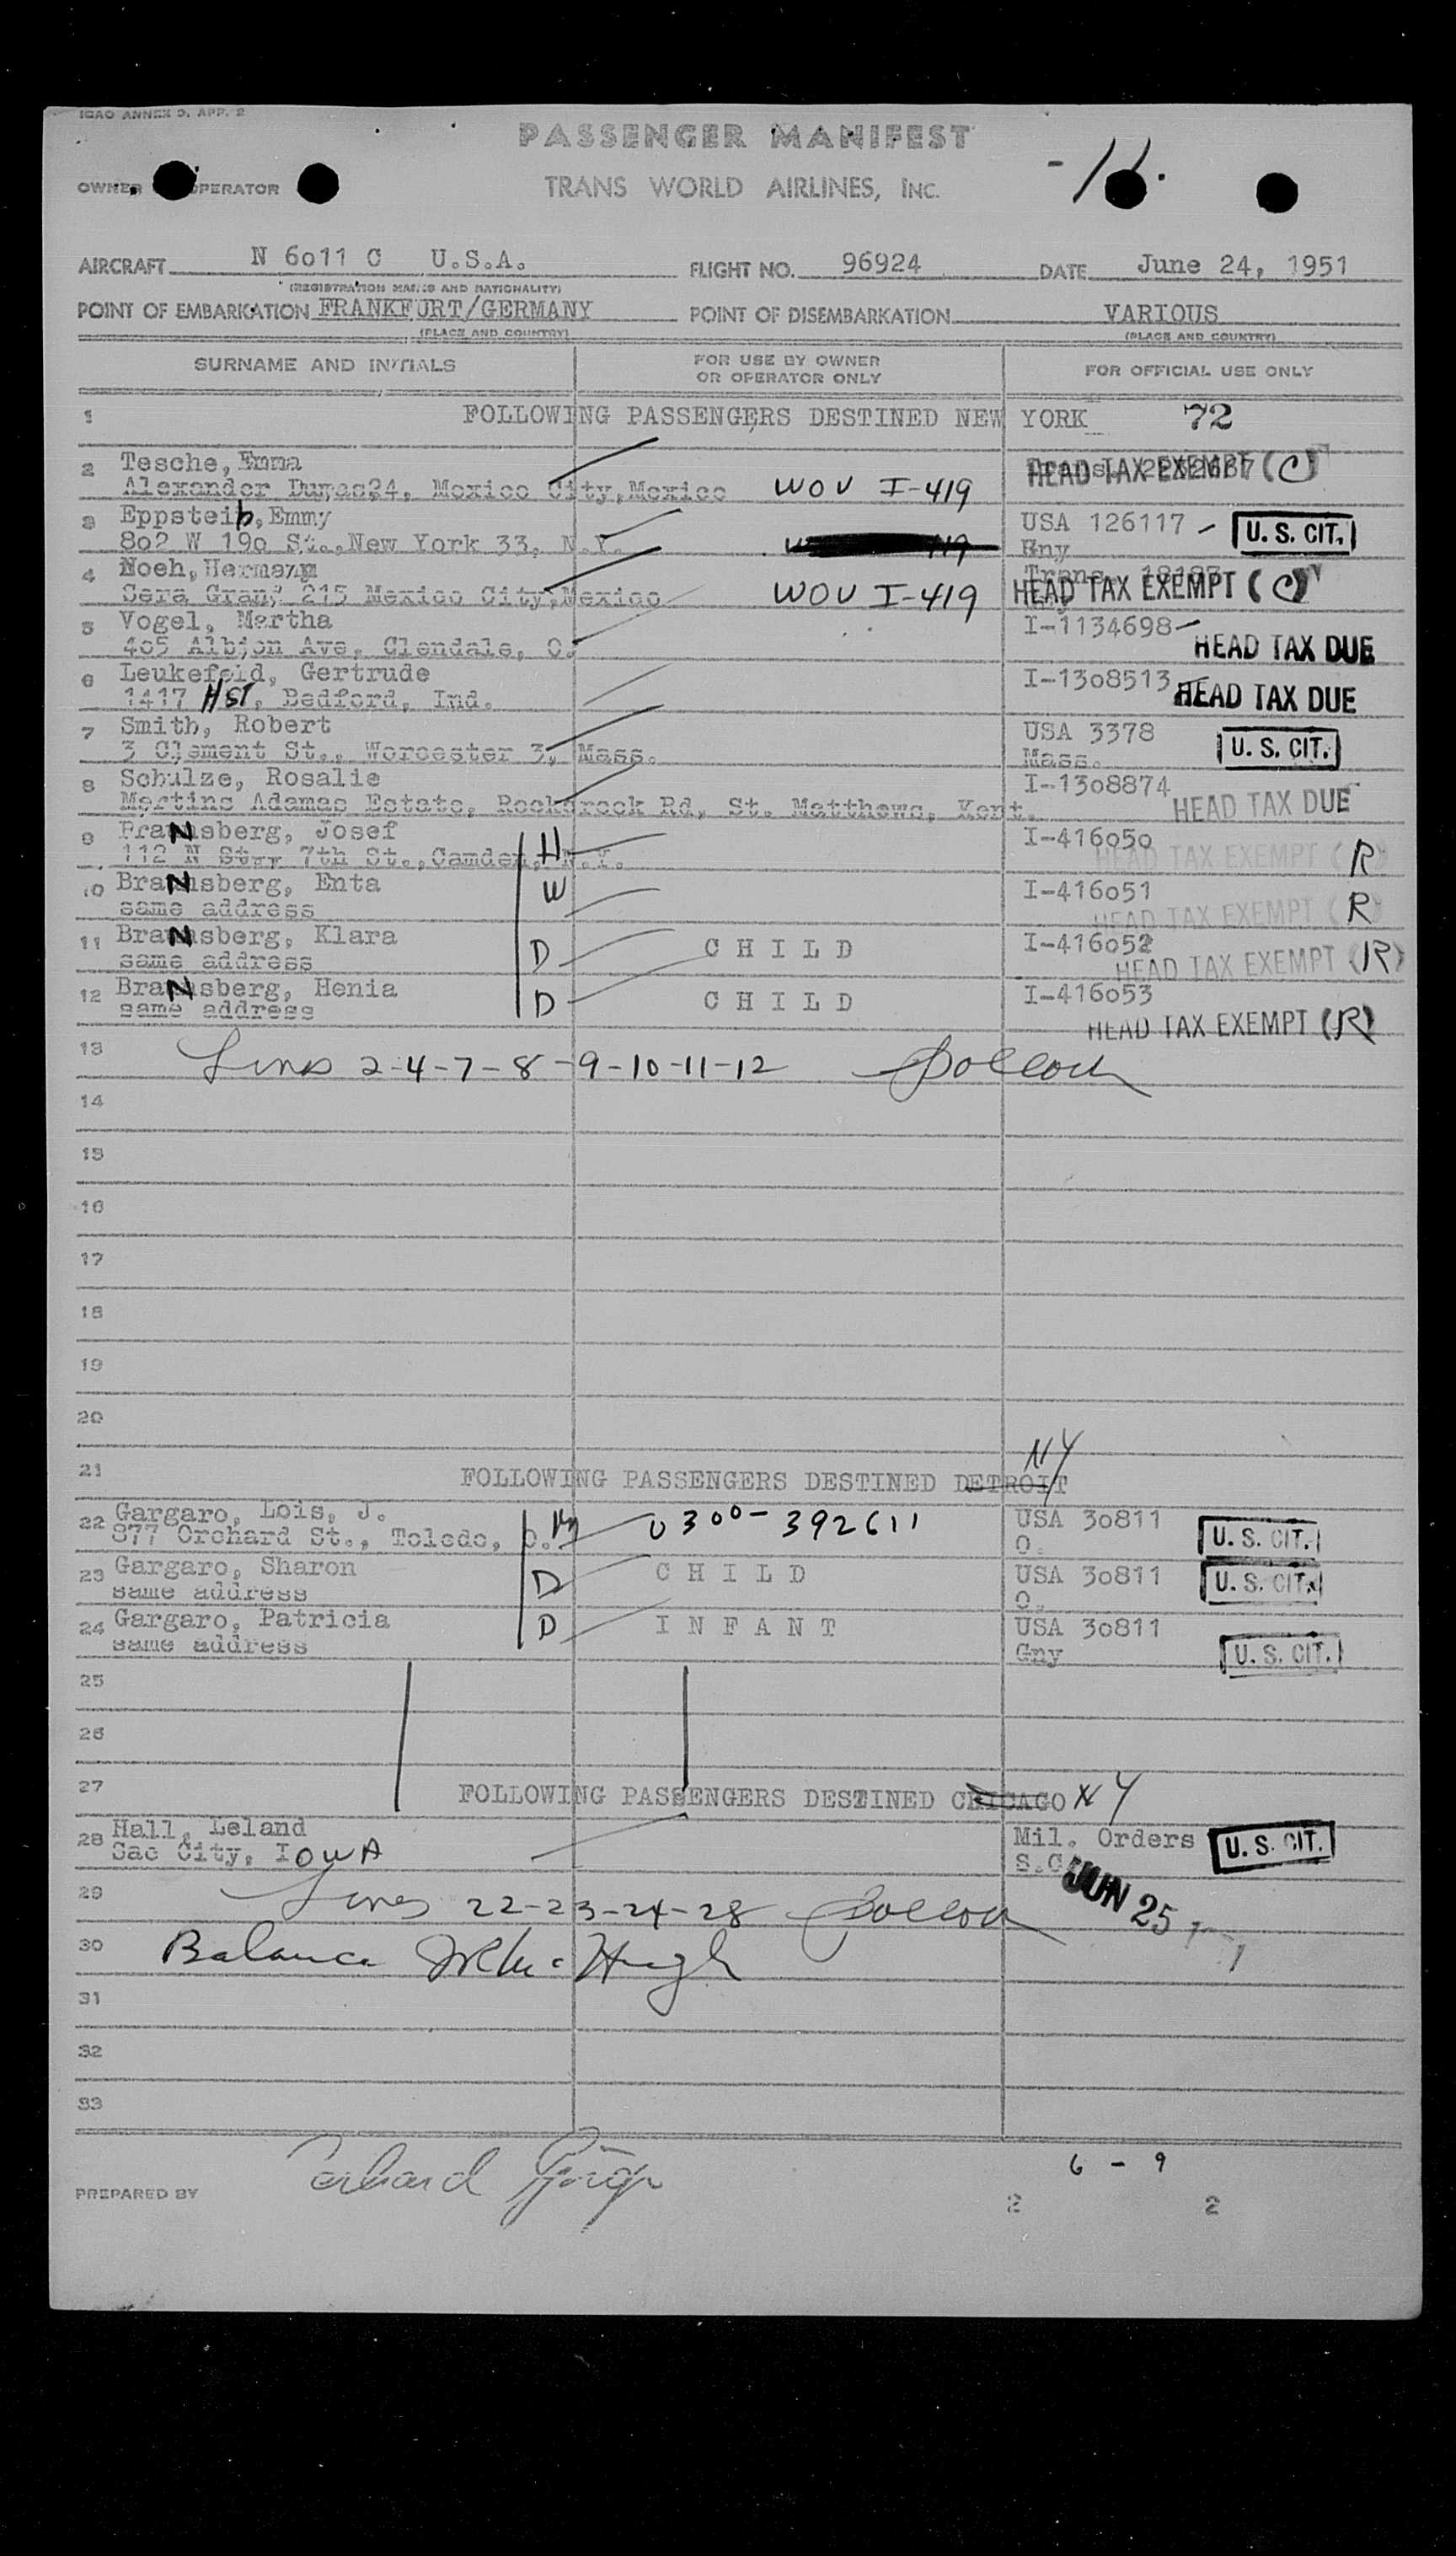 ICAO ANNEX 9, APP. 2
PASSENGER MANIFEST
OWNER OPERATOR
TRANS WORLD AIRLINES, INC.
-11.
AIRCRAFT N 6o11 C U.S.A. FLIGHT NO. 96924 DATE June 24, 1951
(REGISTRATION MARKS AND NATIONALITY)
POINT OF EMBARKATION FRANKFURT/GERMANY POINT OF DISEMBARKATION VARIOUS
(PLACE AND COUNTRY) (PLACE AND COUNTRY)
SURNAME AND INITIALS FOR USE BY OWNER OR OPERATOR ONLY FOR OFFICIAL USE ONLY
1 FOLLOWING PASSENGERS DESTINED NEW YORK 72
2 Tesche, Emma HEAD TAX EXEMPT (C)
Alexander Dumas24, Mexico City, Mexico WOV I-419
3 Eppstein, Emmy USA 126117 U.S. CIT.
8o2 W 19o St., New York 33, N.Y. Eny
4 Noeh, Hermann Trans.
Gera Grand 215 Mexico City, Mexico WOV I-419 HEAD TAX EXEMPT (C)
5 Vogel, Martha I-1134698
4o5 Albion Ave, Glendale, O. HEAD TAX DUE
6 Leukefeld, Gertrude I-13o8513
1417 H ST, Bedford, Ind. HEAD TAX DUE
7 Smith, Robert USA 3378 U.S. CIT.
3 Clement St., Worcester 3, Mass. Mass.
8 Schulze, Rosalie I-13o8874
Martins Adamas Estate, Rockcreek Rd, St. Matthews, Kent. HEAD TAX DUE
9 BraNsberg, Josef H I-416o5o
112 N 7th St., Camden, N.Y. HEAD TAX EXEMPT (R)
10 BraNsberg, Enta W I-416o51
same address HEAD TAX EXEMPT (R)
11 BraNsberg, Klara D CHILD I-416o52
same address HEAD TAX EXEMPT (R)
12 BraNsberg, Henia D CHILD I-416o53
same address HEAD TAX EXEMPT (R)
13 Lines 2-4-7-8-9-10-11-12
14
15
16
17
18
19
20
NY
21 FOLLOWING PASSENGERS DESTINED DETROIT
22 Gargaro, Lois, J. M 0300-392611 USA 3o811 U.S. CIT.
877 Orchard St., Toledo, O. O.
23 Gargaro, Sharon D CHILD USA 3o811 U.S. CIT.
same address O.
24 Gargaro, Patricia D INFANT USA 3o811
same address Gny U.S. CIT.
25
26
27 FOLLOWING PASSENGERS DESTINED CHICAGO NY
28 Hall, Leland Mil. Orders U.S. CIT.
Sac City, IOWA S.C.
29 Lines 22-23-24-28 JUN 25
30 Balance McHugh
31
32
33
6 - 9
PREPARED BY
2 2